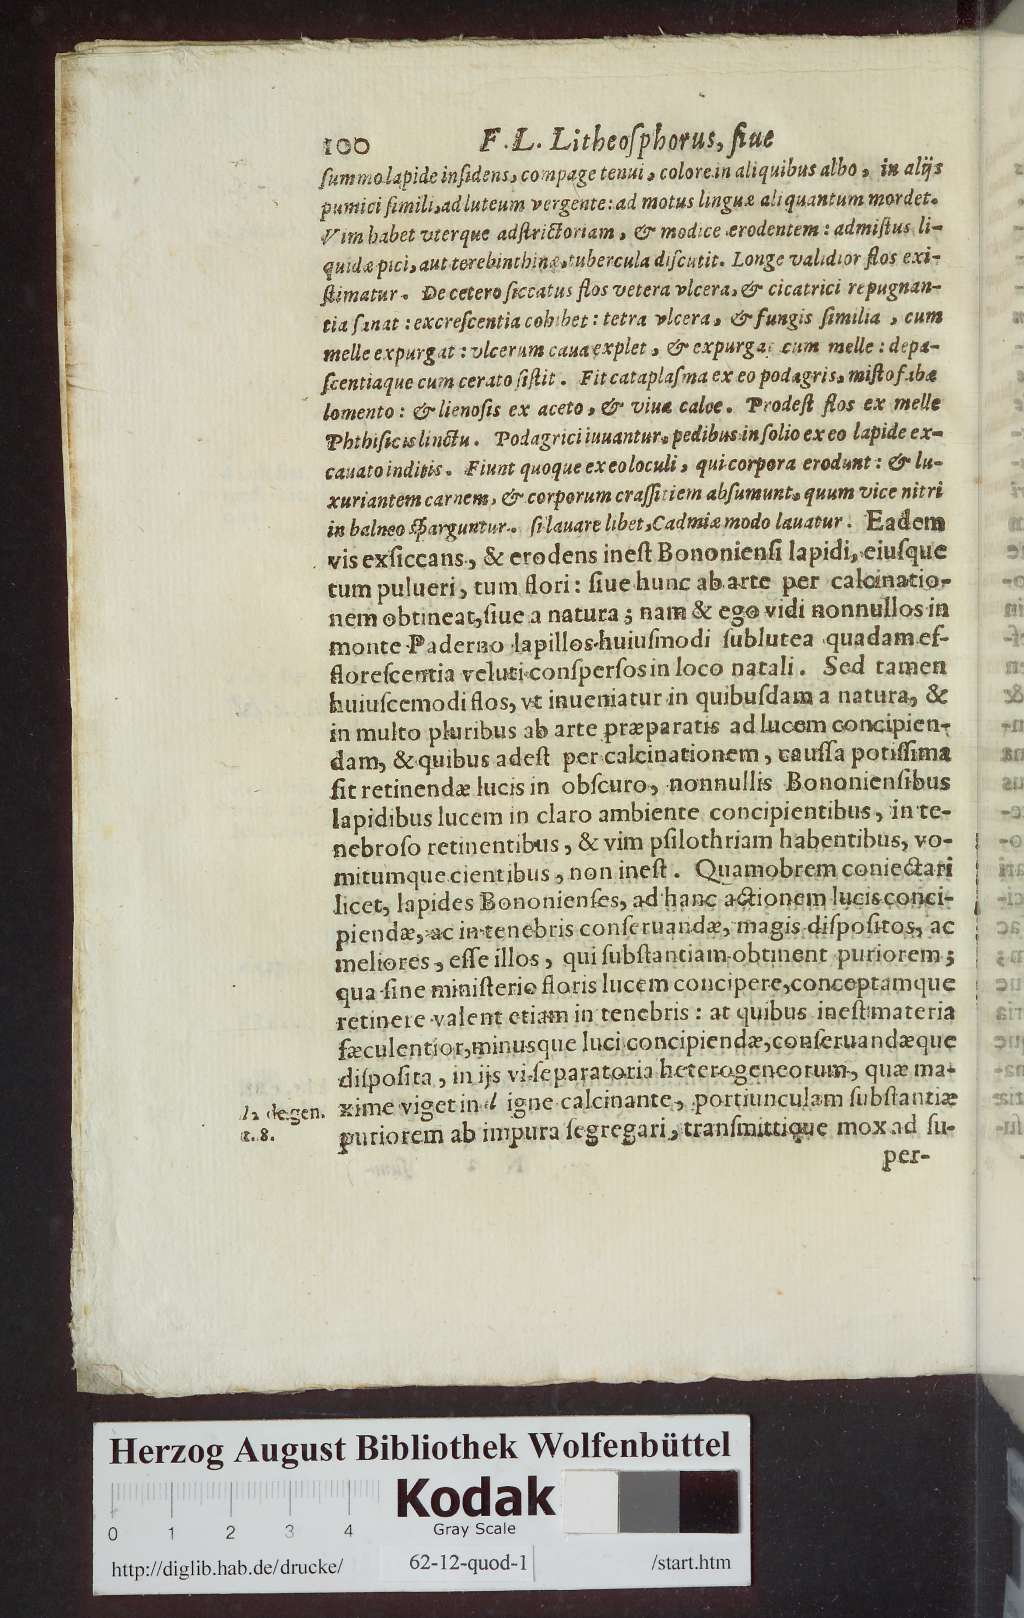 100 F. L. Litheoſphorus, ſiue
ſummo lapide inſidens, compage tenui, colore in aliquibus albo, in alijs
pumici ſimili, ad luteum vergente: ad motus linguæ aliquantum mordet.
Vim habet vterque adſtrictoriam, & modice erodentem: admiſtus li-
quidæ pici, aut terebinthinæ, tubercula diſcutit. Longe validior flos exi-
ſtimatur. De cetero ſiccatus flos vetera vlcera, & cicatrici repugnan-
tia ſanat: excreſcentia cohibet: tetra vlcera, & fungis ſimilia, cum
melle expurgat: vlcerum caua explet, & expurgat cum melle: depa-
ſcentiaque cum cerato ſiſtit. Fit cataplaſma ex eo podagris, miſto fabæ
lomento: & lienoſis ex aceto, & viua calce. Prodeſt flos ex melle
Phthiſicis linctu. Podagrici iuuantur, pedibus in ſolio ex eo lapide ex-
cauato inditis. Fiunt quoque ex eo loculi, qui corpora erodunt: & lu-
xuriantem carnem, & corporum craſſitiem abſumunt, quum vice nitri
in balneo ſparguntur. ſi lauare libet, Cadmiæ modo lauatur. Eadem
vis exſiccans, & erodens ineſt Bononienſi lapidi, eiuſque
tum pulueri, tum flori: ſiue hunc ab arte per calcinatio-
nem obtineat, ſiue a natura; nam & ego vidi nonnullos in
monte Paderno lapillos huiuſmodi ſublutea quadam ef-
floreſcentia veluti conſperſos in loco natali. Sed tamen
huiuſcemodi flos, vt inueniatur in quibuſdam a natura, &
in multo pluribus ab arte præparatis ad lucem concipien-
dam, & quibus adeſt per calcinationem, cauſſa potiſſima
ſit retinendæ lucis in obſcuro, nonnullis Bononienſibus
lapidibus lucem in claro ambiente concipientibus, in te-
nebroſo retinentibus, & vim pſilothriam habentibus, vo-
mitumque cientibus, non ineſt. Quamobrem coniectari
licet, lapides Bononienſes, ad hanc actionem lucis conci-
piendæ, ac in tenebris conſeruandæ, magis diſpoſitos, ac
meliores, eſſe illos, qui ſubſtantiam obtinent puriorem;
qua ſine miniſterio floris lucem concipere, conceptamque
retinere valent etiam in tenebris: at quibus ineſt materia
fæculentior, minusque luci concipiendæ, conſeruandæque
diſpoſita, in ijs vi ſeparatoria heterogeneorum, quæ ma-
xime viget in d igne calcinante, portiunculam ſubſtantiæ
puriorem ab impura ſegregari, tranſmittique mox ad ſu-
per-
d 2. de gen.
t. 8.
Herzog August Bibliothek Wolfenbüttel
0 1 2 3 4
Kodak
Gray Scale
http://diglib.hab.de/drucke/ 62-12-quod-1 /start.htm